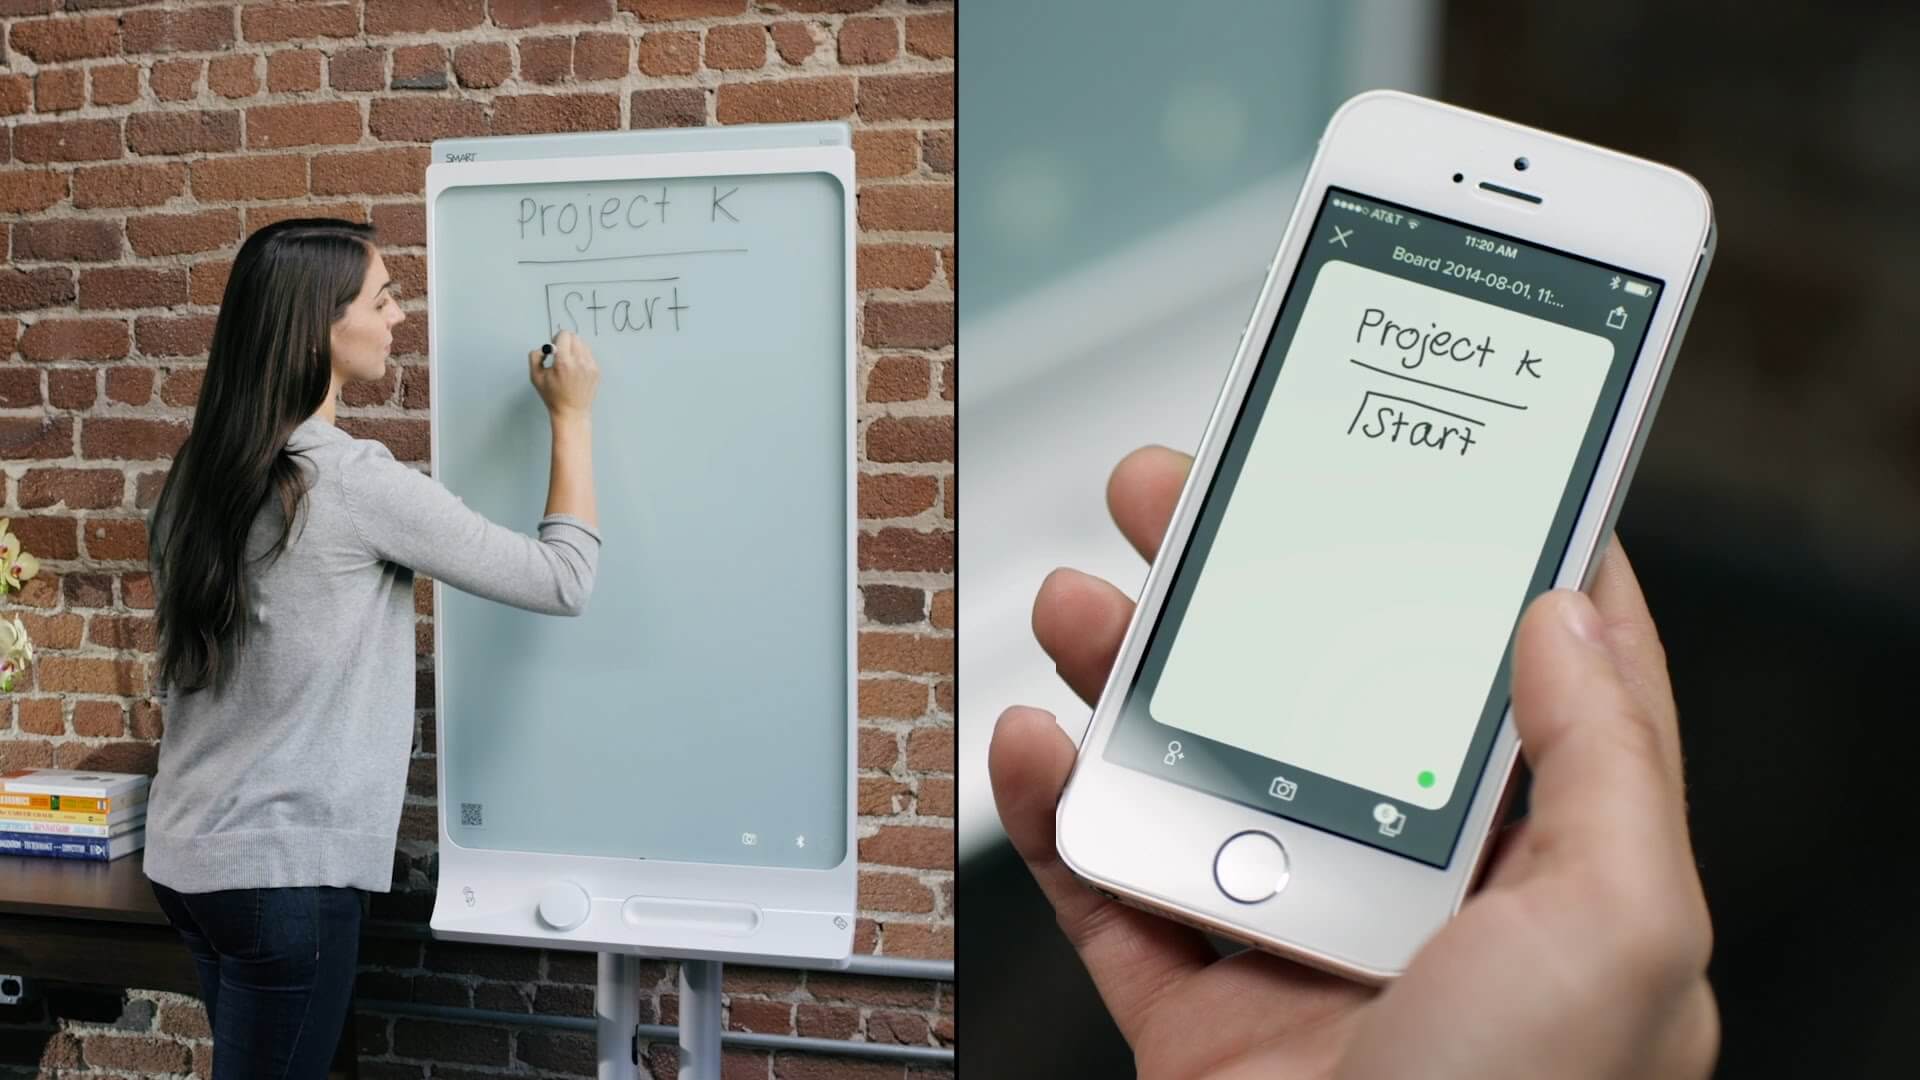 SMART
Project K
Start
AT&T
11:20 AM
Board 2014-08-01, 11:...
Project K
Start
6